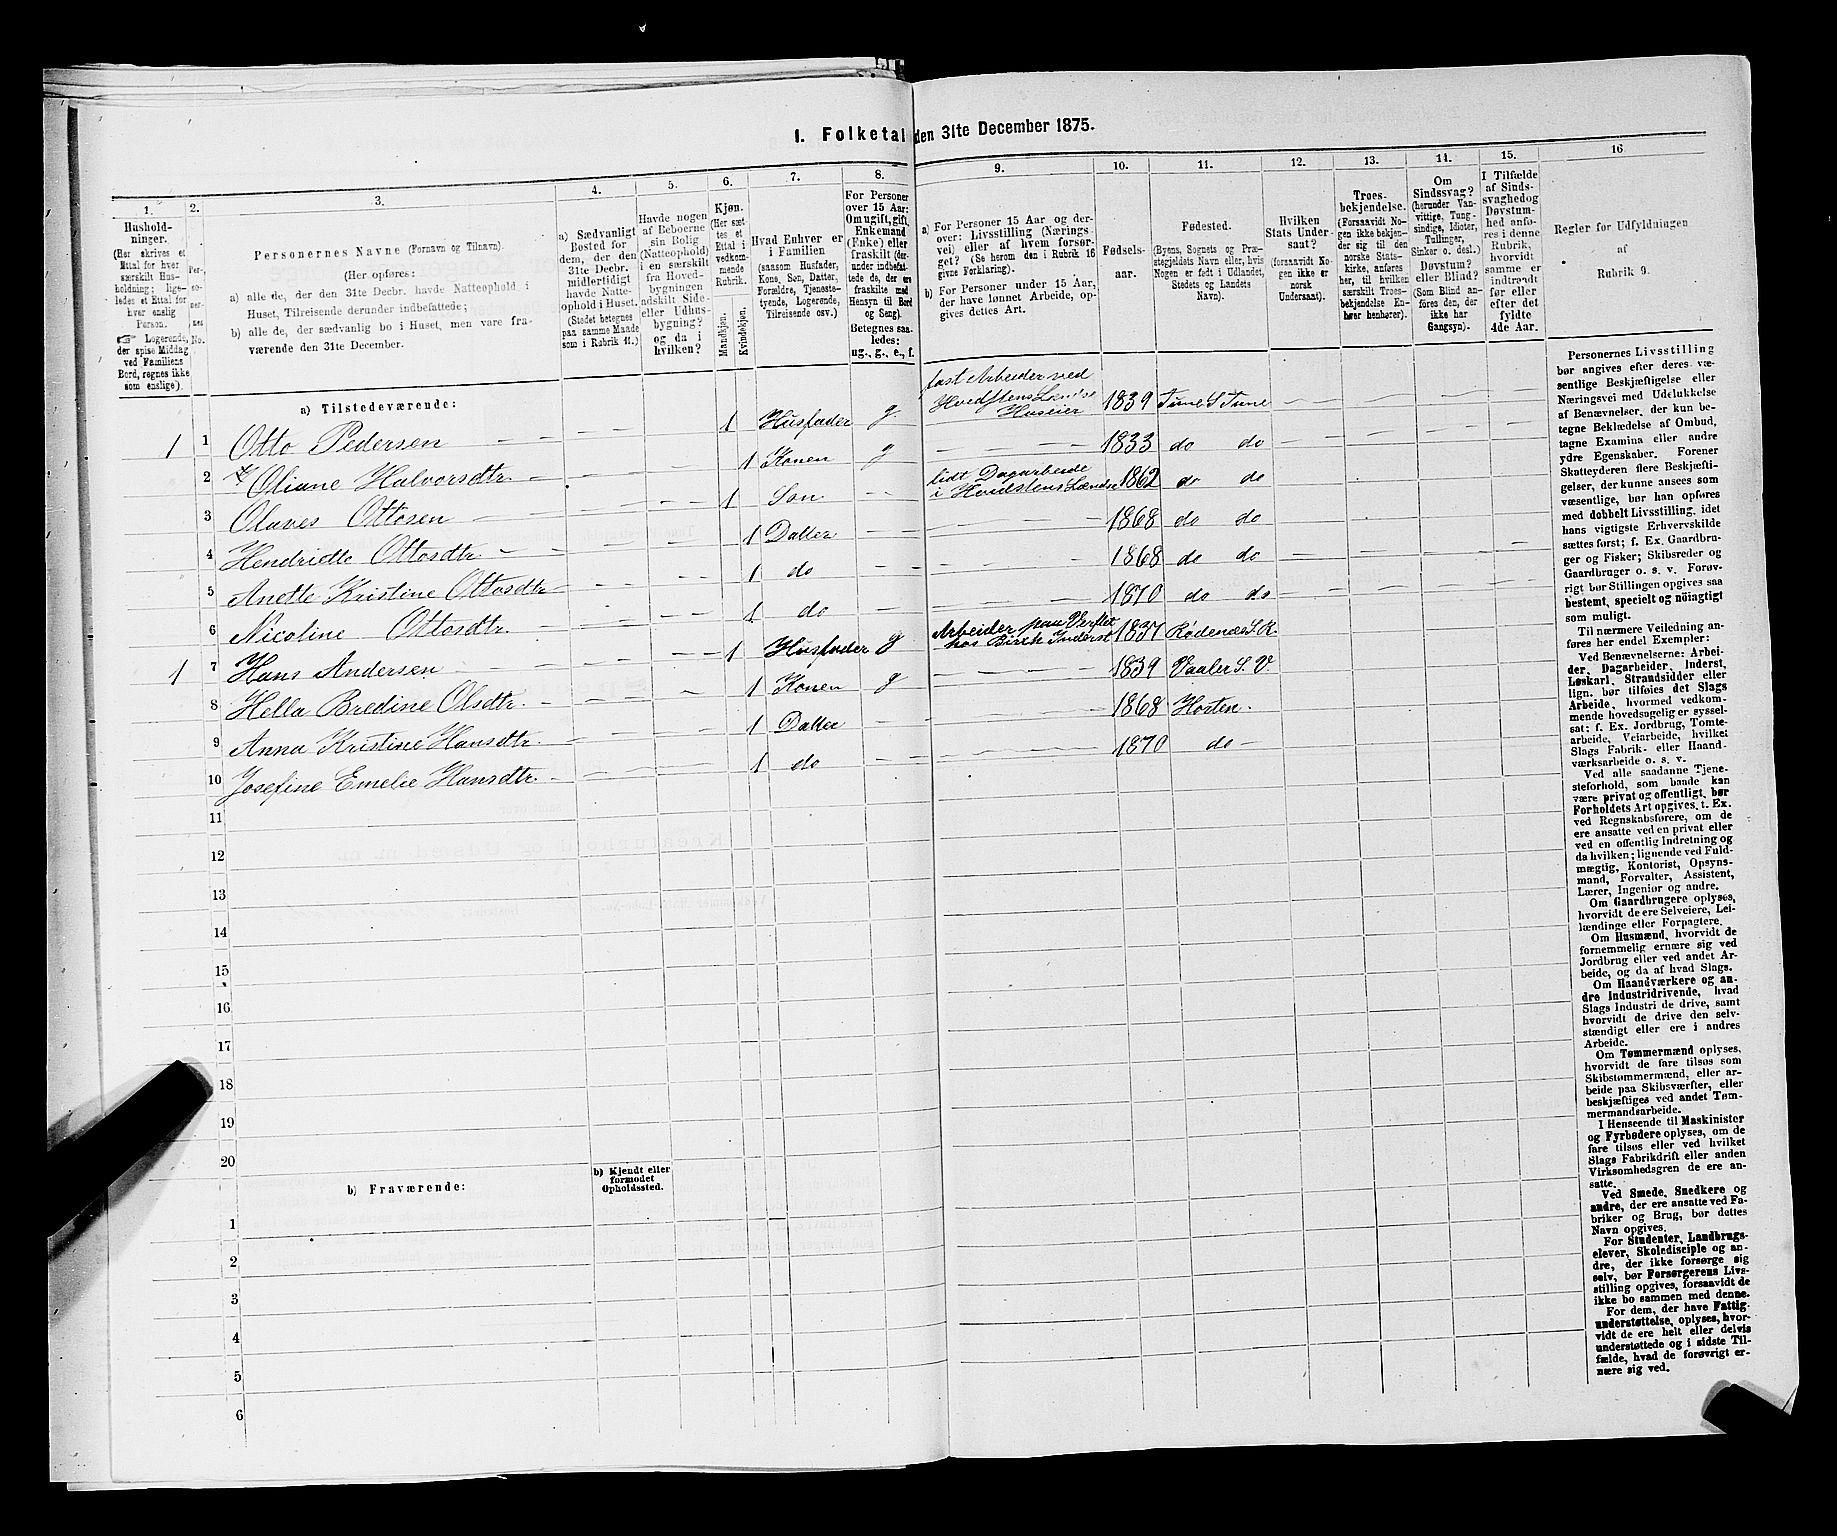 I. Folketal den 31te December 1875.
1.
Hushold-
ninger.
(Her skrives et
Ettal for hver
særskilt Hus-
holdning; lige-
ledes et Ettal for
hver enslig
Person.
☞ Logerende,
der spise Middag
ved Familiens
Bord, regnes ikke
som enslige).
2.
Per-
so-
ner-
nes
No.
3.
Personernes Navne (Fornavn og Tilnavn).
(Her opføres:
a) alle de, der den 31te Decbr. havde Natteophold i
Huset, Tilreisende derunder indbefattede;
b) alle de, der sædvanlig bo i Huset, men vare fra-
værende den 31te December.
4.
a) Sædvanligt
Bosted for
dem, der den
31te Decbr.
midlertidigt
havde Natte-
ophold i Huset.
(Stedet betegnes
paa samme Maade
som i Rubrik 11.)
5.
Havde nogen
af Beboerne
sin Bolig
(Natteophold)
i en særskilt
fra Hoved-
bygningen
adskilt Side-
eller Udhus-
bygning?
og da i
hvilken?
6.
Kjøn.
(Her sæt-
tes et
Ettal i
vedkom-
mende
Rubrik.
Mandkjøn.
Kvindekjøn.
7.
Hvad Enhver er
i Familien
(saasom Husfader,
Kone, Søn, Datter,
Forældre, Tjeneste-
tyende, Logerende,
Tilreisende osv.)
8.
For Personer
over 15 Aar:
Om ugift, gift,
Enkemand
(Enke) eller
fraskilt (der-
under indbefat-
tede de, der ere
fraskilte med
Hensyn til Bord
og Seng).
Betegnes saa-
ledes:
ug., g., e., f.
9.
a) For Personer 15 Aar og der-
over: Livsstilling (Nærings-
vei) eller af hvem forsør-
get? (Se herom den i Rubrik 16
givne Forklaring).
b) For Personer under 15 Aar,
der have lønnet Arbeide, op-
gives dettes Art.
10.
Fødsels-
aar.
11.
Fødested.
(Byens, Sognets og Præ-
stegjeldets Navn eller, hvis
Nogen er født i Udlandet,
Stedets og Landets
Navn).
12.
Hvilken
Stats Under-
saat?
(forsaavidt No-
gen ikke er
norsk
Undersaat).
13.
Troes-
bekjendelse.
(Forsaavidt No-
gen ikke bekjen-
der sig til den
norske Stats-
kirke, anføres
her, til hvilken
særskilt Troes-
bekjendelse En-
hver henhører).
14.
Om
Sindssvag?
(herunder Van-
vittige, Tung-
sindige, Idioter,
Tullinger,
Sinker o. desl.)
Døvstum?
eller Blind?
(Som Blind an-
føres den, der
ikke har
Gangsyn).
15.
I Tilfælde
af Sinds-
svaghed og
Døvstum-
hed anfø-
res i denne
Rubrik,
hvorvidt
samme er
indtraadt
før eller
efter det
fyldte
4de Aar.
16
Regler før Udfyldningen
af
Rubrik 9.
a) Tilstedeværende:
fast Arbeider ved
1 1 Otto Pedersen 1 Husfader g Huseier 1839 Tune S Tune
2 Oliane Halvorsdtr. 1 Konen g 1833 do do
lidt Dagarbeide
3 Olaves Ottosen 1 Søn i Hvidstens Lændse 1862 do do
4 Hendriette Ottosdtr 1 Datter 1868 do do
5 Anette Kristine Ottosdtr 1 do 1868 do do
6 Nicoline Ottosdtr. 1 do 1870 do do
Arbeider paa Verftet
1 7 Hans Andersen 1 Husfader g hos Birch Inderst 1837 Rødenæs S. R.
8 Hella Bredine Olsdtr. 1 Konen g 1839 Vaaler S. V.
9 Anna Kristine Hansdtr. 1 Datter 1868 Horten.
10 Josefine Emelie Hansdtr. 1 do 1870 do
11
12
13
14
15
16
17
18
19
20
b) Fraværende:
b) Kjendt eller
formodet
Opholdssted.
1
2
3
4
5
6
Personernes Livsstilling
bør angives efter deres væ-
sentlige Beskjæftigelse eller
Næringsvei med Udelukkelse
af Benævnelser, der kun be-
tegne Beklædelse af Ombud,
tagne Examina eller andre
ydre Egenskaber. Forener
Skatteyderen flere Beskjæfti-
gelser, der kunne ansees som
væsentlige, bør han opføres
med dobbelt Livsstilling, idet
hans vigtigste Erhvervskilde
sættes først; f. Ex. Gaardbru-
ger og Fisker; Skibsreder og
Gaardbruger o. s. v. Forøv-
rigt bør Stillingen opgives saa
bestemt, specielt og nöiagtigt
som muligt.
Til nærmere Veiledning an-
føres her endel Exempler:
Ved Benævnelserne: Arbei-
der, Dagarbeider, Inderst,
Løskarl, Strandsidder eller
lign. bør tilføies det Slags
Arbeide, hvormed vedkom-
mende hovedsagelig er syssel-
sat; f. Ex. Jordbrug, Tomte-
arbeide, Veiarbeide, hvilket
Slags Fabrik- eller Haand-
værksarbeide o. s. v.
Ved alle saadanne Tjene-
steforhold, som baade kan
være privat og offentligt, bør
Forholdets Art opgives, t. Ex.
ved Regnskabsførere, om de
ere ansatte ved en privat eller
ved en offentlig Indretning og
da hvilken; lignende ved Fuld-
mægtig, Kontorist, Opsyns-
mand, Forvalter, Assistent,
Lærer, Ingeniør og andre.
Om Gaardbrugere oplyses,
hvorvidt de ere Selveiere, Lei-
lændinge eller Forpagtere.
Om Husmænd, hvorvidt de
fornemmelig ernære sig ved
Jordbrug eller ved andet Ar-
beide, og da af hvad Slags.
Om Haandværkere og an-
dre Industridrivende, hvad
Slags Industri de drive, samt
hvorvidt de drive den selv-
stændigt eller ere i andres
Arbeide.
Om Tømmermænd oplyses,
hvorvidt de fare tilsøs som
Skibstømmermænd, eller ar-
beide paa Skibsværfter, eller
beskjæftiges ved andet Tøm-
mermandsarbeide.
I Henseende til Maskinister
og Fyrbødere oplyses, om de
fare tilsøs eller ved hvilket
Slags Fabrikdrift eller anden
Virksomhedsgren de ere an-
satte.
Ved Smede, Snedkere og
andre, der ere ansatte ved Fa-
briker og Brug, bør dettes
Navn opgives.
For Studenter, Landbrugs-
elever, Skoledisciple og an-
dre, der ikke forsørge sig
selv, bør Forsørgerens Livs-
stilling opgives, forsaavidt de
ikke bo sammen med denne.
For dem, der have Fattig-
understøttelse, oplyses, hvor-
vidt de ere helt eller delvis
understøttede og i sidste Til-
fælde, hvad de forøvrigt er-
nære sig ved.